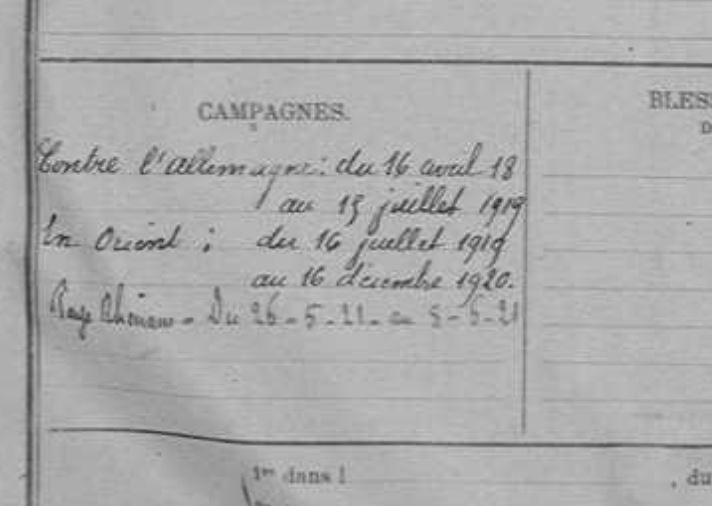 CAMPAGNES.
BLES
D
Contre l'allemagne : du 16 avril 18
au 15 juillet 1919
En Orient : du 16 juillet 1919
au 16 décembre 1920.
Pays Rhénans - Du 26-5-21- au 5-6-21
1er dans l
, du